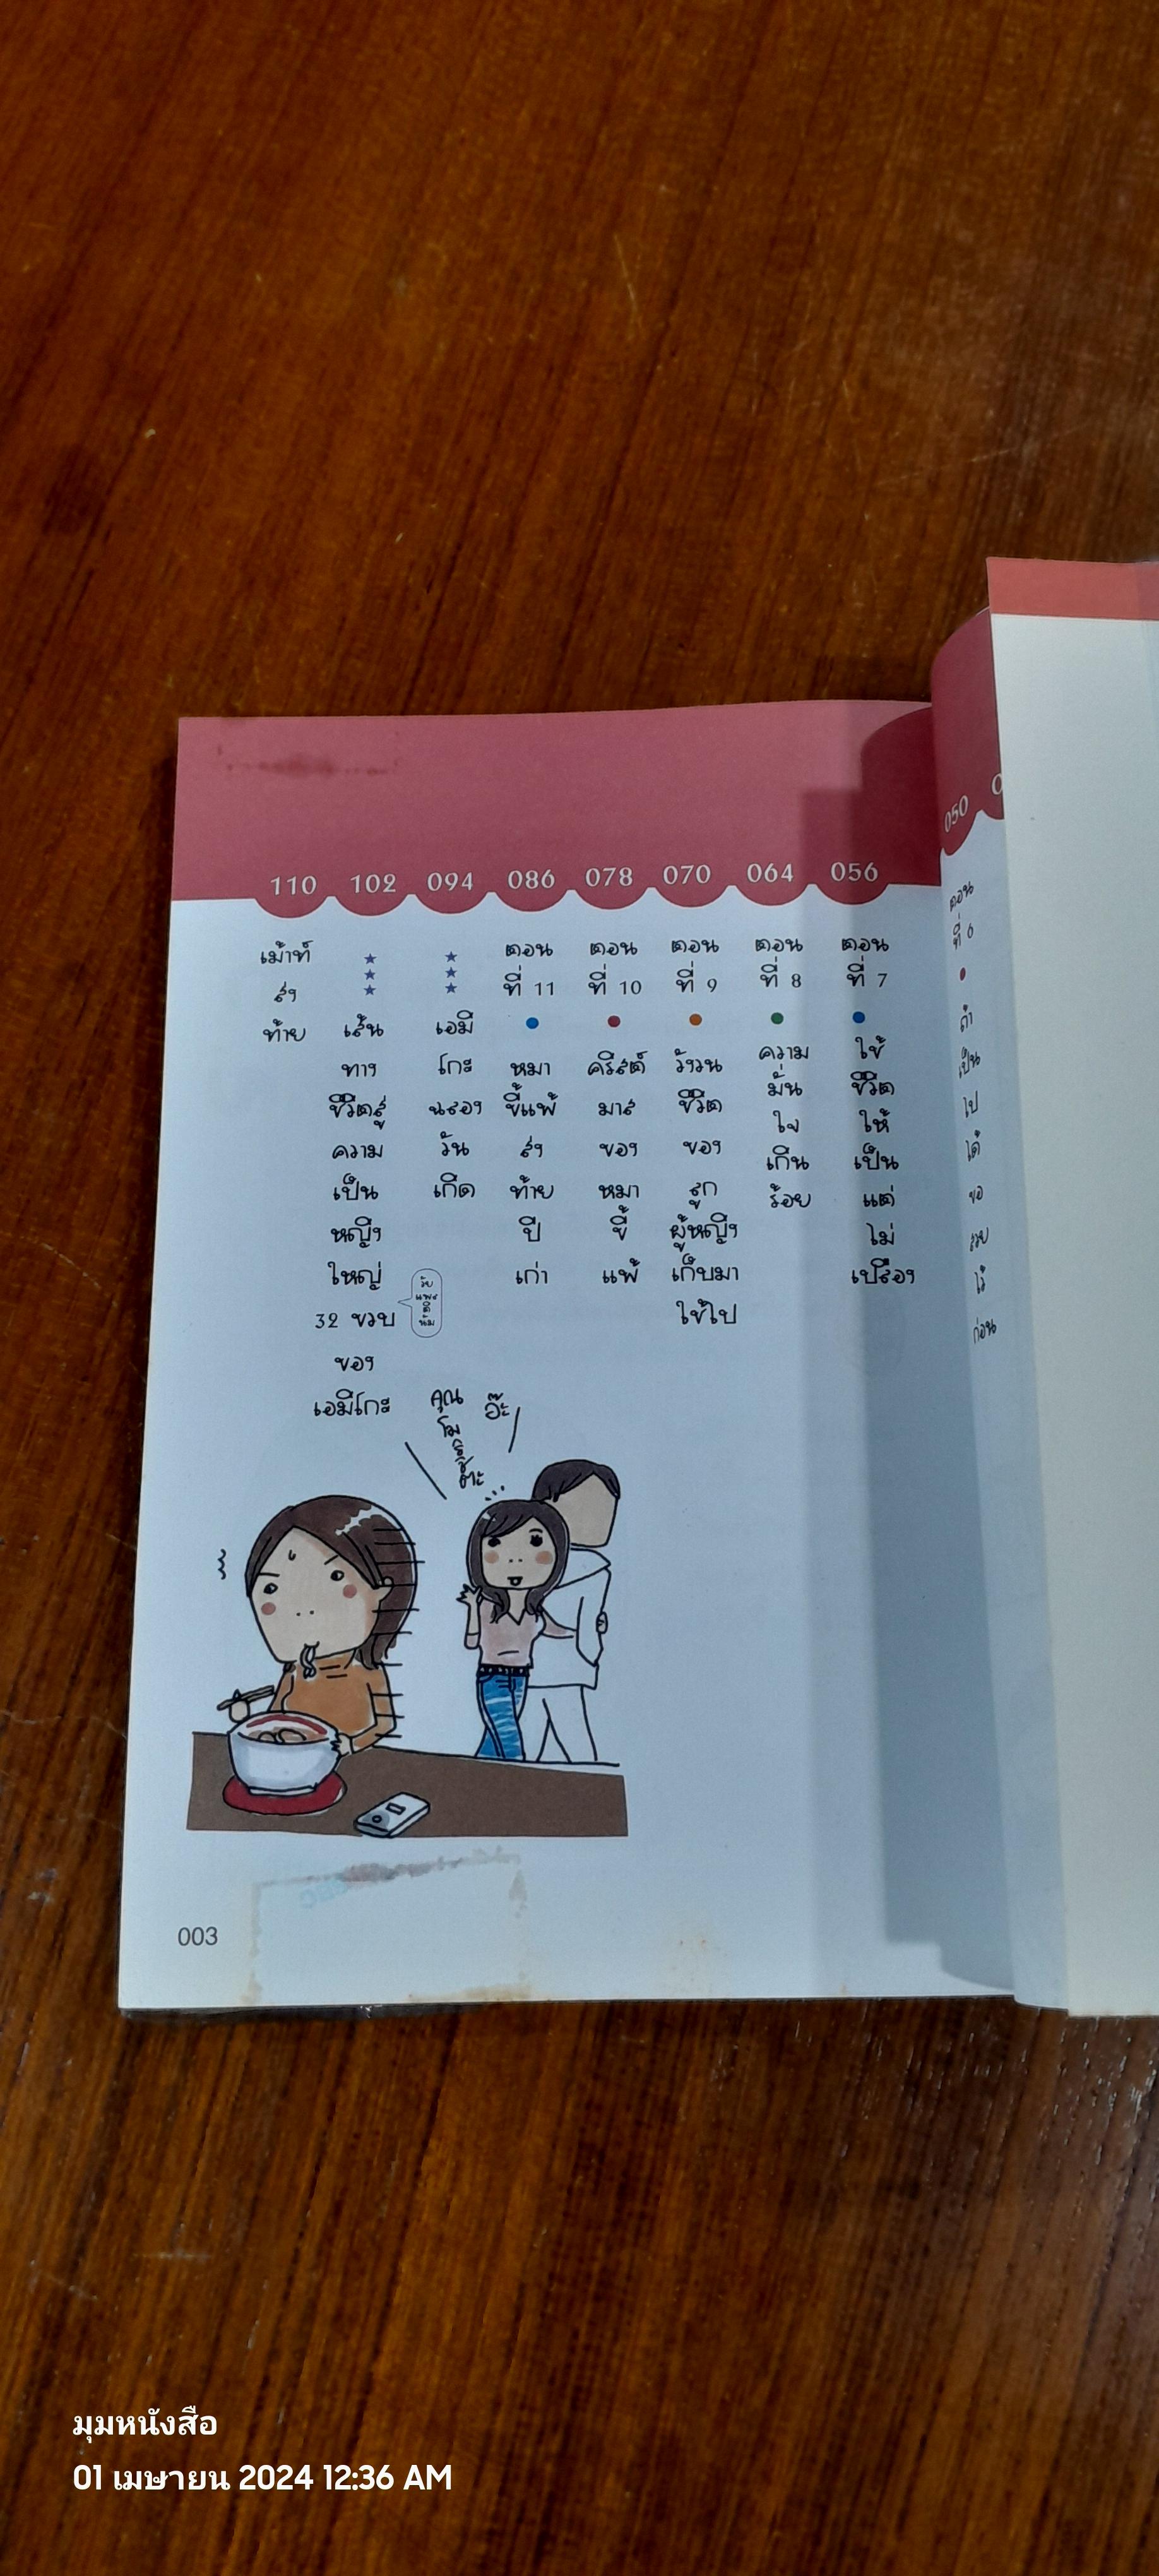 110 102 094 086 078 070 064 056
050
ตอน
ที่ 6
ถ้า
เป็น
ไป
ได้
ขอ
รวย
ไว้
ก่อน
ตอน
ที่ 7
ใช้
ชีวิต
ให้
เป็น
แต่
ไม่
เปลือง
ตอน
ที่ 8
ความ
มั่น
ใจ
เกิน
ร้อย
ตอน
ที่ 9
วังวน
ชีวิต
ของ
ลูก
ผู้หญิง
เก็บมา
ใช้ไป
ตอน
ที่ 10
คริสต์
มาส
ของ
หมา
ขี้
แพ้
ตอน
ที่ 11
หมา
ขี้แพ้
ส่ง
ท้าย
ปี
เก่า
เอมี
โกะ
ฉลอง
วัน
เกิด
เส้น
ทาง
ชีวิตสู่
ความ
เป็น
หญิง
ใหญ่
32 ขวบ
ของ
เอมีโกะ
เม้าท์
ส่ง
ท้าย
คุณ
โม
อ๊ะ
003
มุมหนังสือ
01 เมษายน 2024 12:36 AM